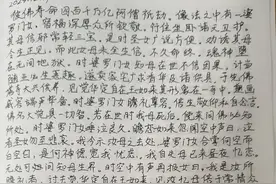 彼佛寿命四百千万亿阿僧祇劫。像法之中有一婆
罗门女,宿福深厚众所钦敬,行住坐卧诸天卫护。
其母信邪常轻三宝。是时圣女广说方便,劝诱其母
令生正见。而此女母未全生信。不久命终,魂神堕
在无间地狱。时婆罗门女知母在世不信因果,计当
随业必生恶趣。遂卖家宅广求香华及诸供具,于先佛
塔寺大兴供养。见觉华定自在王如来其形像在一寺中,塑画
威容端严毕备。时婆罗门女瞻礼尊容,倍生敬仰私自念言。
佛名大觉具一切智。若在世时我母死后,傥来问佛必知处
所。时婆罗门女垂泣良久,瞻恋如来忽闻空中声曰。泣
者圣女勿至悲哀。我今示汝母之去处。婆罗门女合掌向空
而白空曰。是何神德宽我忧虑。我自失母已来昼夜忆恋。
无处可问知母生界。时空中有声再报女曰。我是汝所瞻